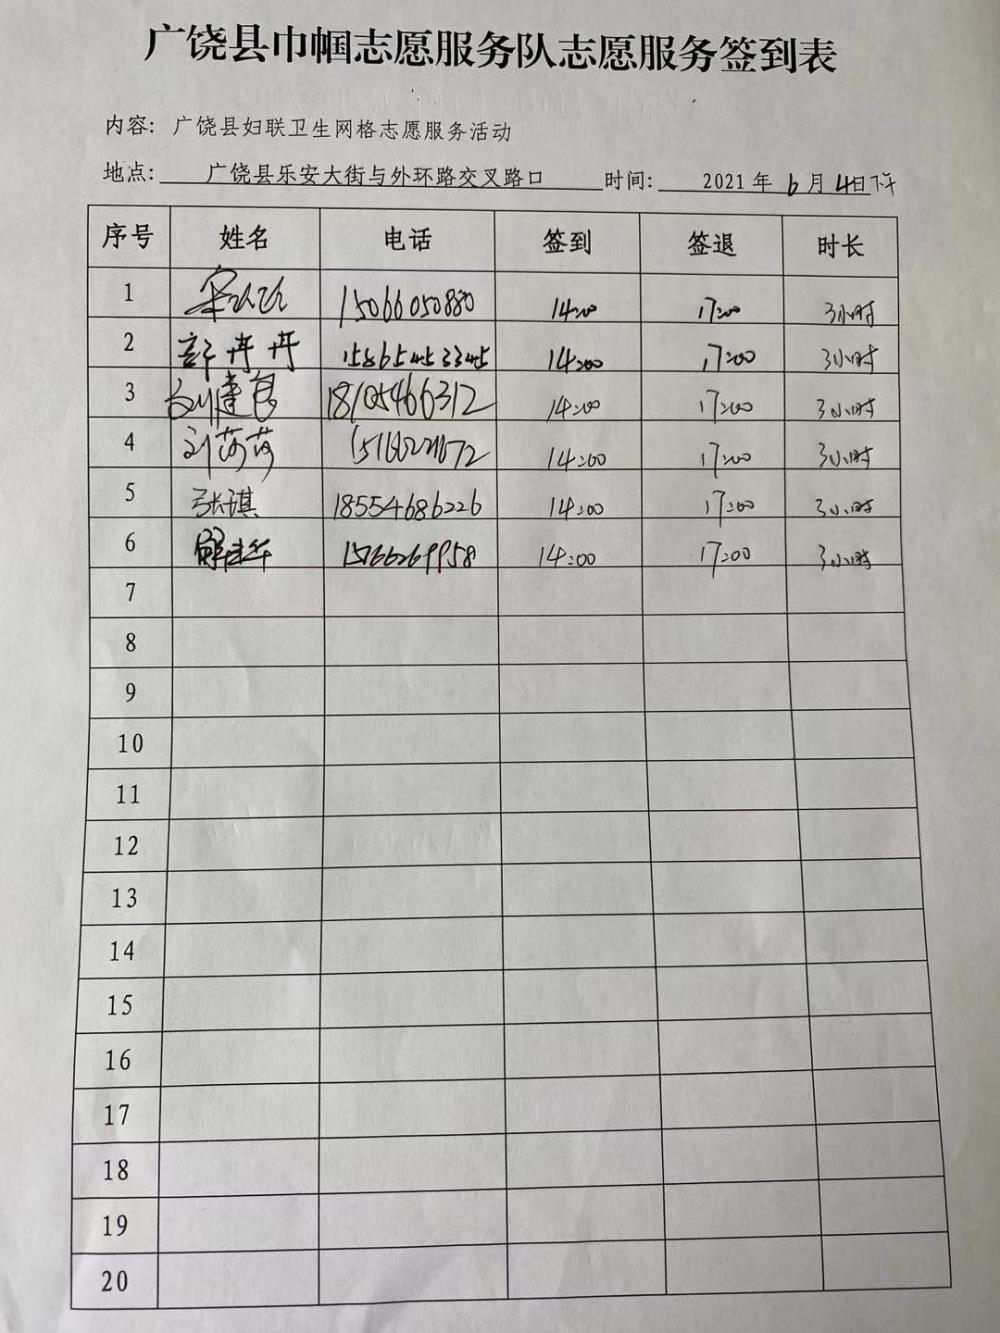 广饶县巾帼志愿服务队志愿服务签到表
内容: 广饶县妇联卫生网格志愿服务活动
地点: 广饶县乐安大街与外环路交叉路口 时间: 2021年6月4日下午
序号 姓名 电话 签到 签退 时长
1 15066050880 14:00 17:00 3小时
2 卉卉 15865453345 14:00 17:00 3小时
3 刘建 18105466312 14:00 17:00 3小时
4 刘 14:00 17:00 3小时
5 张琪 18554686226 14:00 17:00 3小时
6 解 14:00 17:00 3小时
7
8
9
10
11
12
13
14
15
16
17
18
19
20